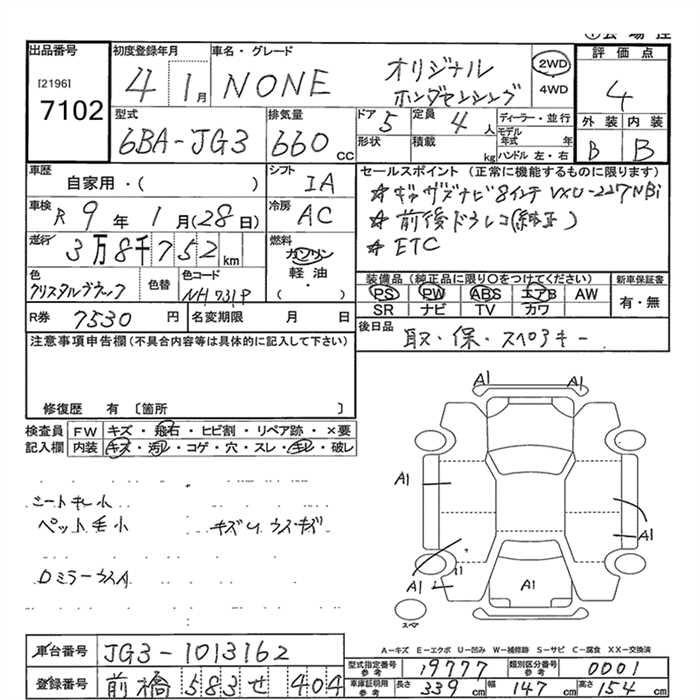 出品番号
[2196]
7102
初度登録年月
4 1月
車名・グレード
NONE
オリジナル
ホンダセンシング
2WD
4WD
評価点
4
外装 内装
B B
型式
6BA-JG3
排気量
660 cc
ドア
5
定員
4人
形状
積載
kg
ディーラー・並行
モデル年式 年
ハンドル 左・右
車歴
自家用・( )
シフト
IA
車検
R 9年 1月(28日)
冷房
AC
走行
3万8千752km
燃料
ガソリン
軽油
( ・ )
色
クリスタルブラック
色替
色コード
NH731P
R券
7530円
名変期限 月 日
セールスポイント (正常に機能するものに限ります)
☆ギャザズナビ8インチ VXU-227NBi
☆前後ドラレコ(純正)
☆ETC
装備品 (純正品に限り○をつけてください)
PS PW ABS エアB AW
SR ナビ TV カワ
新車保証書
有・無
後日品
取・保・スペアキー
注意事項申告欄 (不具合内容等は具体的に記入して下さい)
修復歴 有 〔箇所 〕
検査員
記入欄
FW キズ・飛石・ヒビ割・リペア跡・×要
内装 キズ・汚レ・コゲ・穴・スレ・キレ・破レ
シートキレ小
ペット毛小
キズU ウスキズ
DミラーウスA
A1 A1
A1
A1
A1
A1
スペア
A-キズ E-エクボ U-凹み W-補修跡 S-サビ C-腐食 XX-交換済
車台番号
JG3-1013162
登録番号
前橋 583 せ 404
型式指定番号
参考
19777
類別区分番号
参考
0001
車庫証明用
参考
長さ 339 cm 幅 147 cm 高さ 154 cm